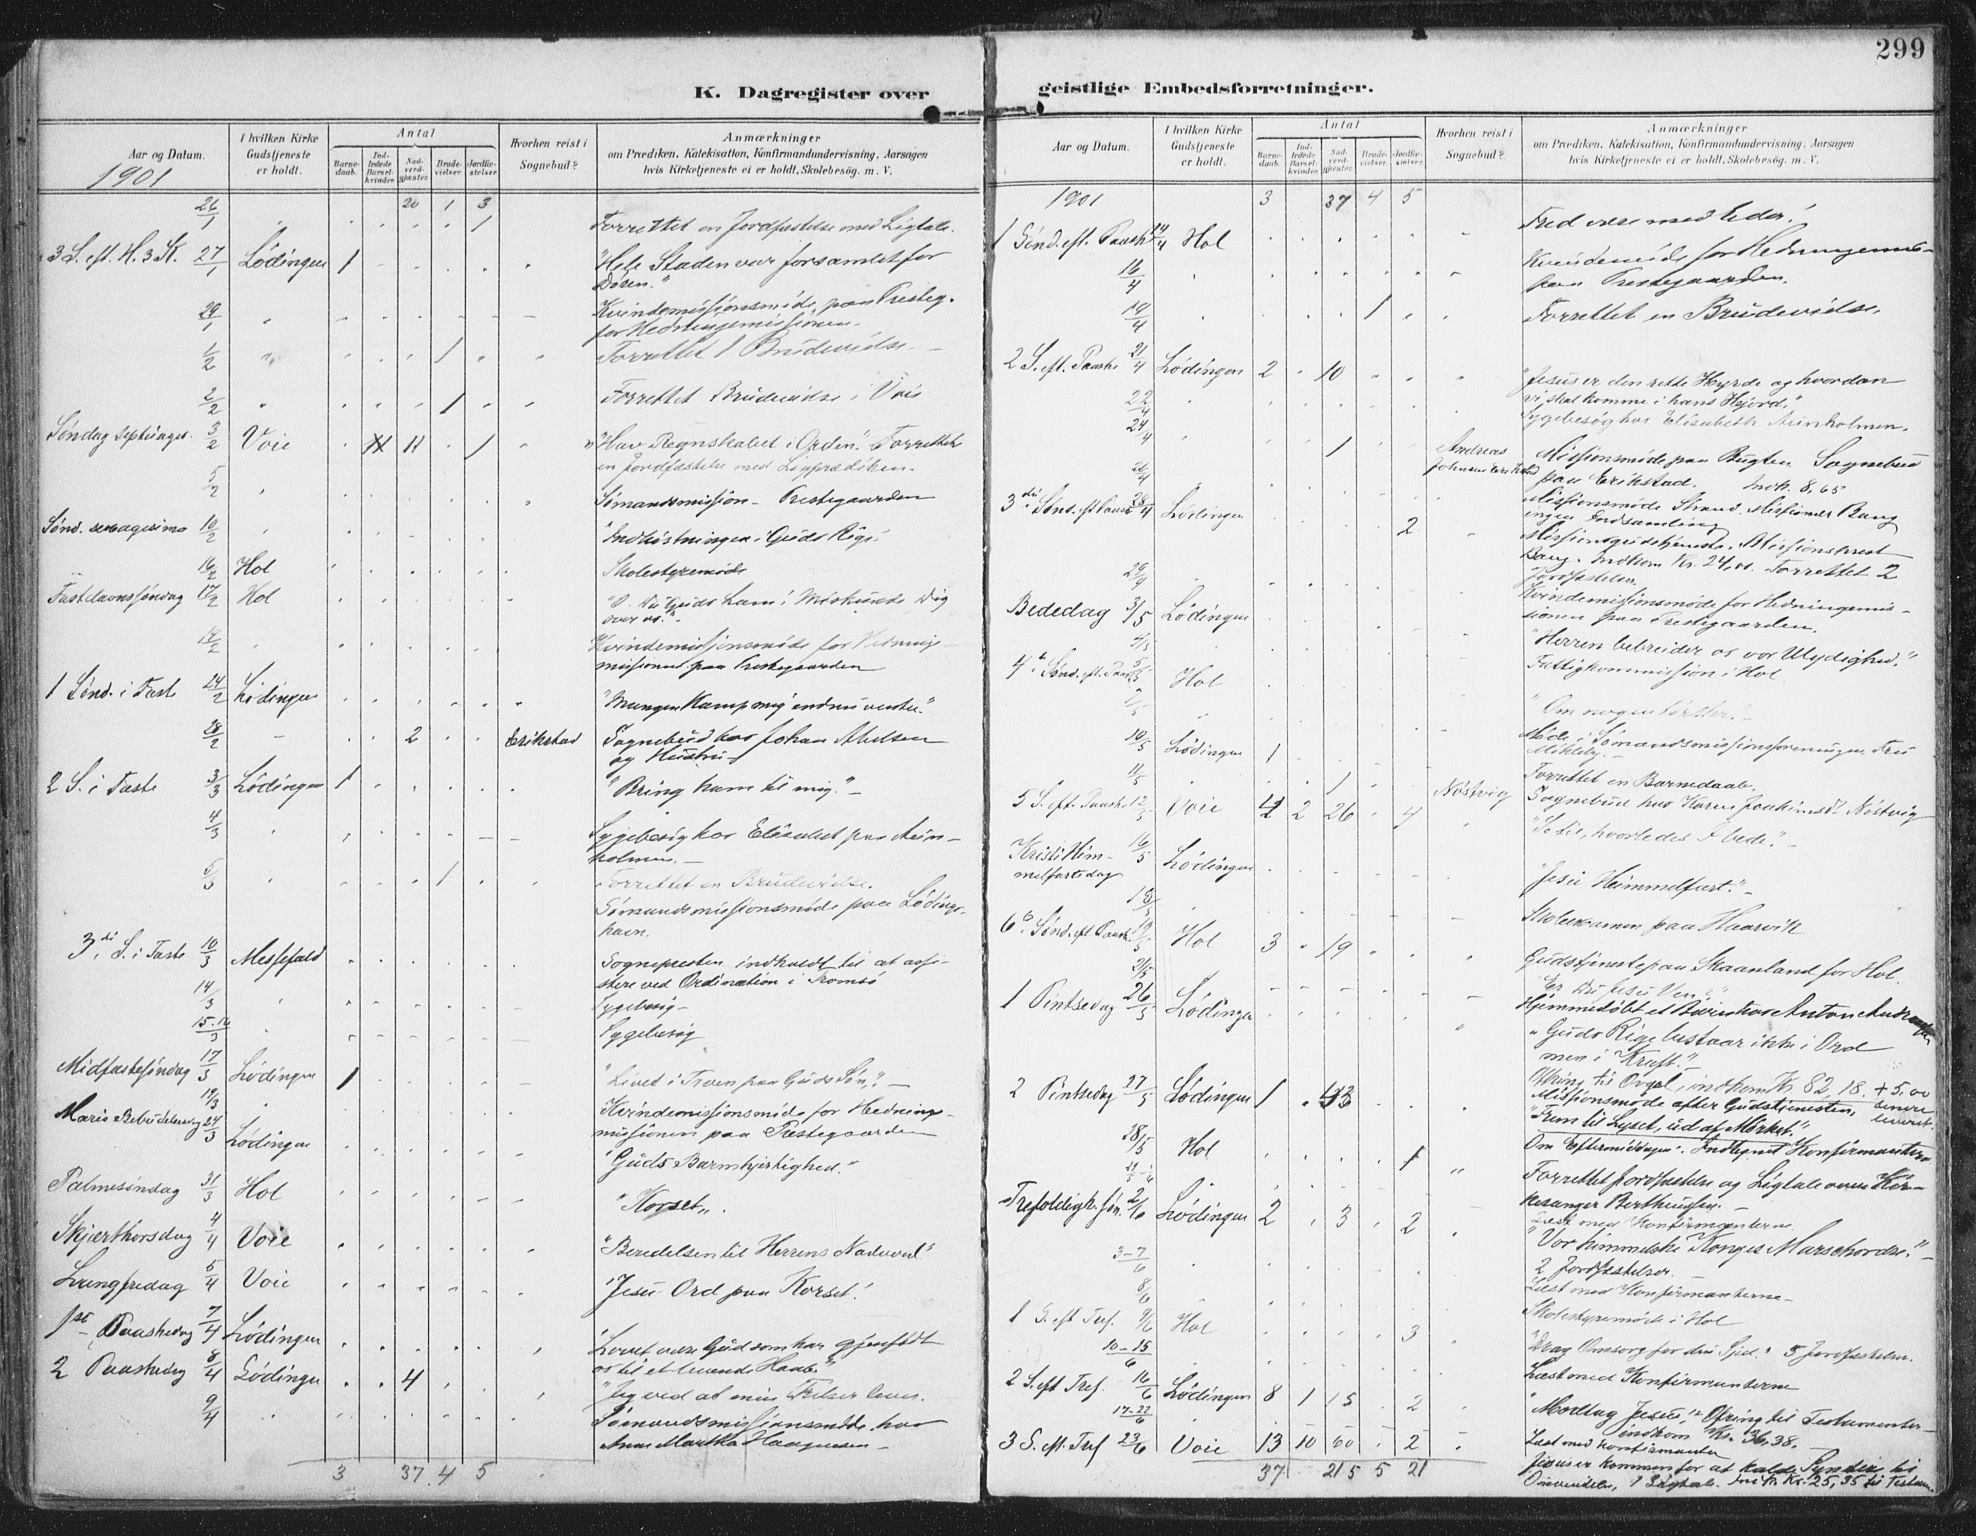 299
K. Dagregister over geistlige Embedsforretninger.
Aar og Datum.
1901
I hvilken Kirke Gudstjeneste er holdt.
Antal
Barnedaab.
Indledede Barselkvinder.
Nadverdgjæster.
Brudevielser.
Jordfæstelser.
Hvorhen reist i Sognebud?
Anmærkninger
om Prædiken, Katekisation, Konfirmandundervisning, Aarsagen
hvis Kirketjeneste ei er holdt, Skolebesøg. m. V.
20 1 3
26/1 1 Forrettet en Jordfæstelse med Ligtale.
3 S. eft. H. 3 K. 27/1 Lødingen 1 "Hele Staden var forsamlet for
Døren."
29/1 Kvindemissionsmøde paa Presteg.
for Hedningemissionen.
1/2 1 Forrettet 1 Brudevielse.
2/2 1 Forrettet Brudevielse i Voie
Søndag Septuages. 3/2 Voie 11 1 "Hav Regnskabet i Orden." Forrettet
en Jordfæstelse med
5/2 Sømandsmission - Prestegaarden
Sønd. sexagesima 10/2 "Indhøstningen i Guds Rige
16/2 Hol Skolestyremøde
Fastelavnssøndag 17/2 Hol "O. Du Guds Lam! Miskunde Dig
over os."
19/2 Kvindemissionsmøde for Hedning-
missionen paa Prestegaarden
1 Sønd. i Faste 24/2 Lødingen "Mangen Kamp mig endnu venter."
28/2 2 Erikstad Sognebud hos Johan Abelsen
og Hustru
2 S. i Faste 3/3 Lødingen 1 "Bring ham til mig."
4/3 Sygebesøg hos Elisabet paa Aun-
holmen.
5/3 1 Forrettet en Brudevielse.
Sømandsmissionsmøde paa Lødings-
havn.
3die S. i Faste 10/3 Messefald Sognepresten indkaldt til at assi-
stere ved Ordination i Tromsø
14/3 Sygebesøg
15-16/3 Sygebesøg
Midfastesøndag 17/3 Lødingen 1 "Livet i Troen paa Guds Søn."
19/3 Kvindemissionsmøde for Hednings-
missionen paa Prestegaarden
Maria Bebudelsesdag 24/3 Lødingen "Guds Barmhjertighed."
Palmesøndag 31/3 Hol "Korset".
Skjærthorsdag 4/4 Voie "Beredelsen til Herrens Nadverd"
Langfredag 5/4 Voie "Jesu Ord paa Korset."
1ste Paaskedag 7/4 Lødingen "Lovet være Gud som har gjenfødt
os til et levende Haab."
2 Paaskedag 8/4 Lødingen 4 "Jeg ved at min Frelser lever.
9/4 Sømandsmissionsmøde hos
Anne Martha Haagensen
3 37 4 5
Aar og Datum.
I hvilken Kirke Gudstjeneste er holdt.
Antal
Barnedaab.
Indledede Barselkvinder.
Nadverdgjæster.
Brudevielser.
Jordfæstelser.
Hvorhen reist i Sognebud?
Anmærkninger
om Prædiken, Katekisation, Konfirmandundervisning, Aarsagen
hvis Kirketjeneste ei er holdt, Skolebesøg. m. V.
1901 3 37 4 5
1 Sønd. eft. Paaske 14/4 Hol Fred være med Eder!
16/4 Kvindemøde for Hedningemis-
paa Prestegaarden.
19/4 1 Forrettet en Brudevielse.
2 S. eft. Paaske 21/4 Lødingen 2 10 "Jesus er den rette Hyrde og hvordan
vi skal komme i hans Hjord."
22/4 Sygebesøg hos Elisabeth Aunholmen.
24/4 1 Andreas Johnsen Erikstad Missionsmøde paa Bugten. Sognebud
paa Erikstad. Indk. 8,65
26/4 Missionsmøde Strand. Missionær Bang
ingen Indsamling
3die Sønd. eft Paaske 28/4 Lødingen 2 Missionsgudstjeneste. Missionsprest
Bang. Indkom Kr. 24, Forrettet 2
Jordfæstelser.
29/4 Kvindemissionsmøde for Hedningemis-
sionen paa Prestegaarden.
Bededag 3/5 Lødingen "Herren bebreider os vor Ulydighed."
4/5 Fattigkommission i Hol
4de Sønd. eft. Paaske 5/5 Hol "Om nogen tørster."
7/5 Møde i Sømandsmissionsforeningen Fru
10/5 Lødingen 1 Forrettet en Barnedaab.
11/5 1 Nøstvig Sognebud hos Karen Joakimsd. Nøstvig
5 S. eft. Paaske 12/5 Voie 4 2 26 4 "Se til, hvorledes I bede."
Kristi Him-
melfartsdag 16/5 Lødingen "Jesu Himmelfart."
18/5 Skoleexamen paa Haarvik
6te Sønd. eft Paaske 19/5 Hol 3 19 Gudstjeneste paa Skaanland for Hol.
"Er Du Jesu Ven?"
21/5 Hjemmedøbt et Barn hos Anton
1 Pintsedag 26/5 Lødingen "Guds Rige bestaar ikke i Ord
men i Kraft."
Ofring til Orgel, indkom Kr. 82,18. + 5,00
senere leveret.
2 Pintsedag 27/5 Lødingen 1 Missionsmøde efter Gudstjenesten,
"Frem til Lyset, ud af Mørket."
28/5 Hol 1 Om Eftermiddagen. Indtegnet Konfirmanter
Forrettet Jordfæstelse og Ligtale over Kir-
kesanger Berthensen.
Læst med Konfirmanterne.
Trefoldighedssøn. 2/6 Lødingen 2 3 2 "Vor himmelske Konges Marschordre."
2 Jordfæstelser.
3-7/6 Læst med Konfirmanterne
8/6 Skolestyremøde i Hol
1 S. eft Tref. 9/6 Hol 3 "Drag Omsorg for din Sjæl." 3 Jordfæstelser.
10-15/6 Læst med Konfirmanterne
2 S. eft Tref. 16/6 Lødingen 8 1 15 2 "Modtag Jesus." Ofring til Testamenter
indkom Kr. 36,38.
17-22/6 Læst med Konfirmanter
3 S. eft. Tref 23/6 Voie 13 10 60 2 Jesus er kommen for at kalde Syndere til
Omvendelse, 1 Ligtale. Indk. Kr. 25,35 til Testam.
37 215 5 21